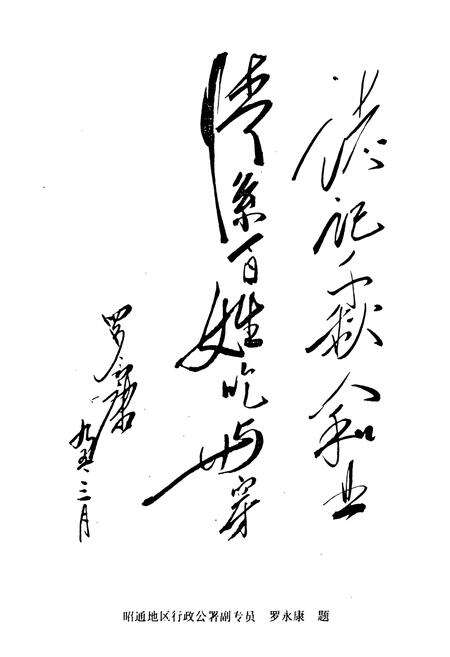 记千秋人和业
情系百姓吃与穿
罗永康
九五·三月
昭通地区行政公署副专员 罗永康 题